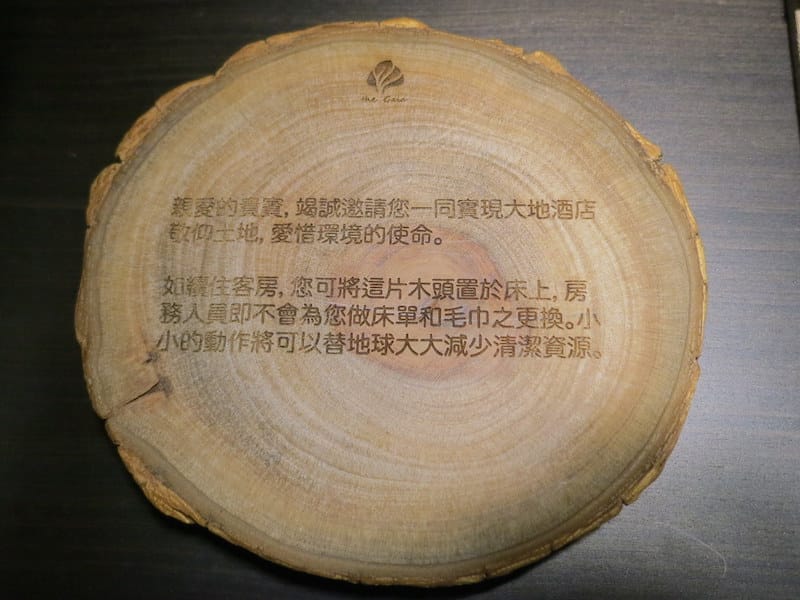 the Gaia
親愛的貴賓, 竭誠邀請您一同實現大地酒店
敬仰土地, 愛惜環境的使命。
如續住客房, 您可將這片木頭置於床上, 房
務人員即不會為您做床單和毛巾之更換。小
小的動作將可以替地球大大減少清潔資源。